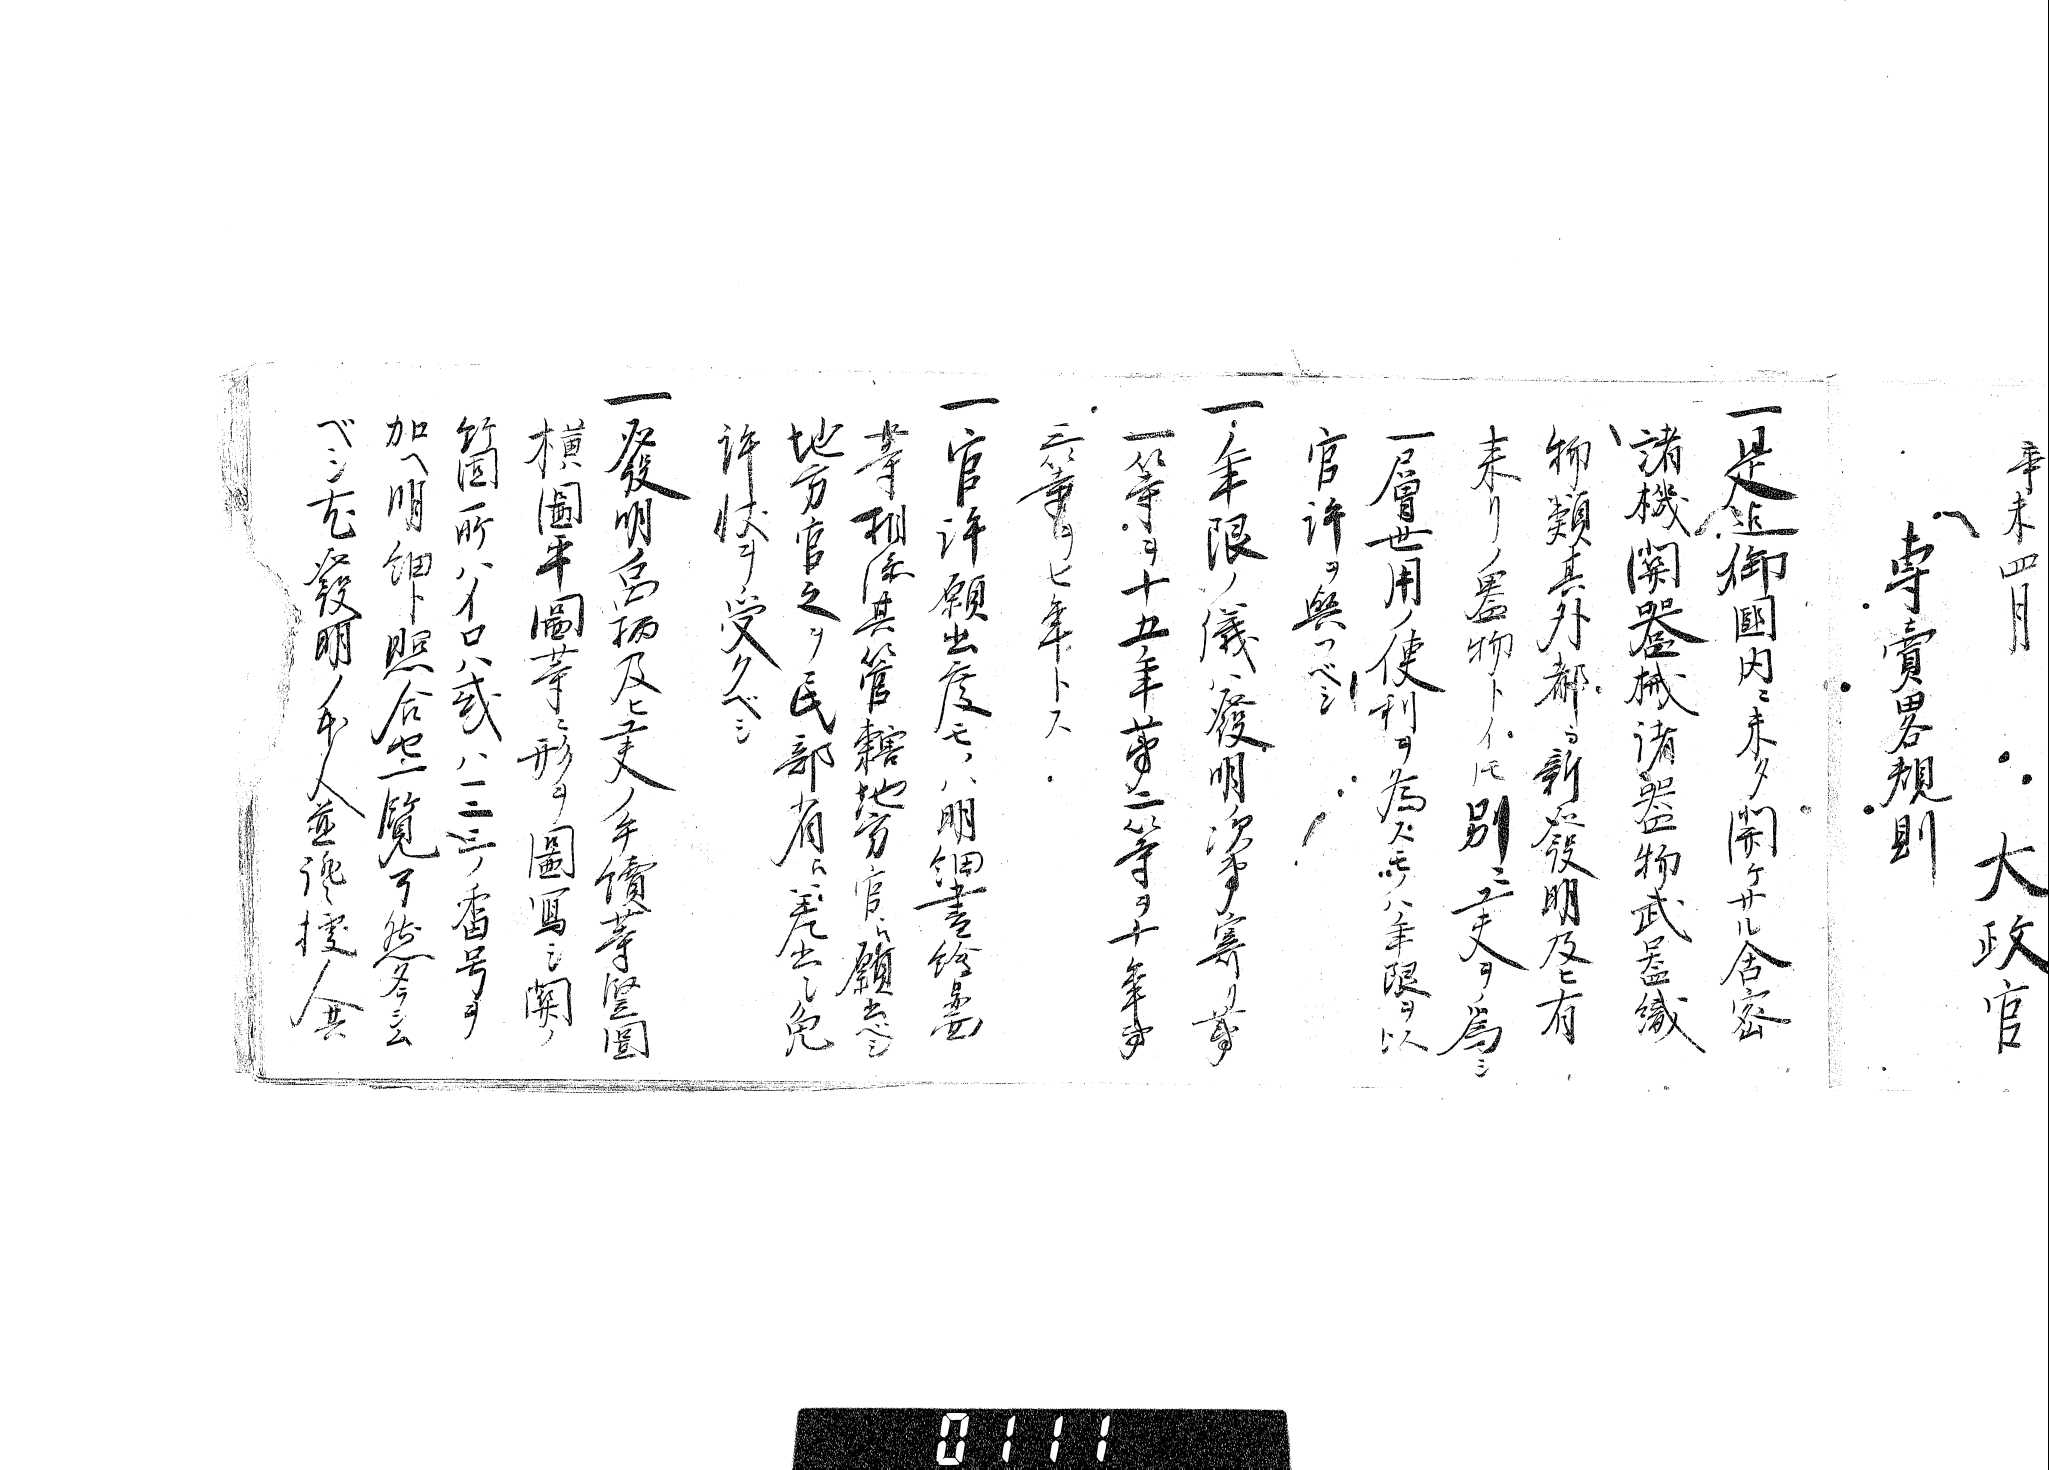 辛未四月
大政官
専賣畧規則
一是迠御國内ニ未タ開ケサル舎密
諸機関器械諸器物武器織
物類其外都而新發明及ヒ有
来リノ器物トイヘ𪜈別ニ工夫ヲ為シ
一層世用ノ便利ヲ為スモノハ年限ヲ以
官許ヲ與フベシ
一年限ノ儀ハ發明ノ次第ニ寄リ第
一等ヲ十五年第二等ヲ十年第
三等ヲ七年トス
一官許願出度モノハ明細書繪圖
等相添其管轄地方官ニ願出ベシ
地方官之ヲ民部省ニ差出シ免
許状ヲ受クベシ
一發明品柄及ヒ工夫ノ手續等竪圖
横圖平圖等ニ形ヲ圖寫シ関ノ
箇所ハイロハ或ハ一二三ノ番号ヲ
加ヘ明細ト照合セ一覧了然タラシム
ベシ尤發明ノ本人並證據人共
0111